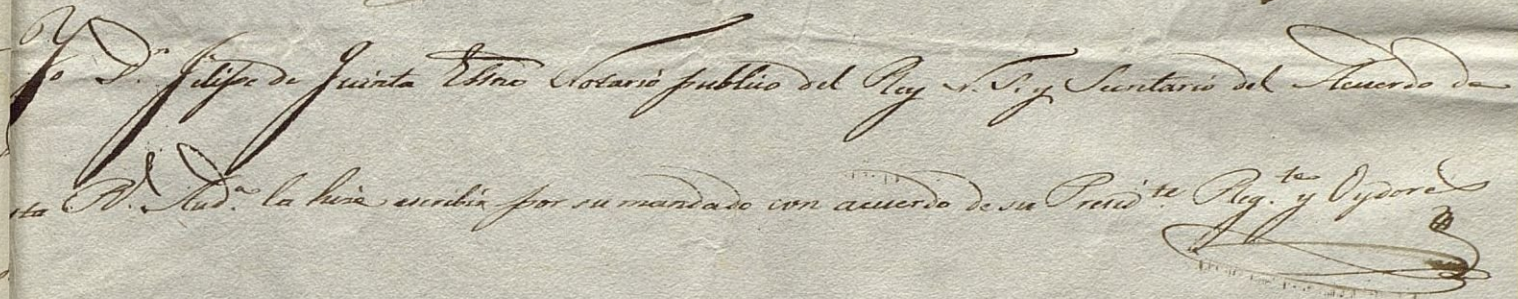 Yo Dn. Felipe de Quinta Essno Notario publico del Rey N. S. y Secretario del Acuerdo de
sta Rl. Auda. la hize escribir por su mandado con acuerdo de su Presidte. Regte. y Oydores